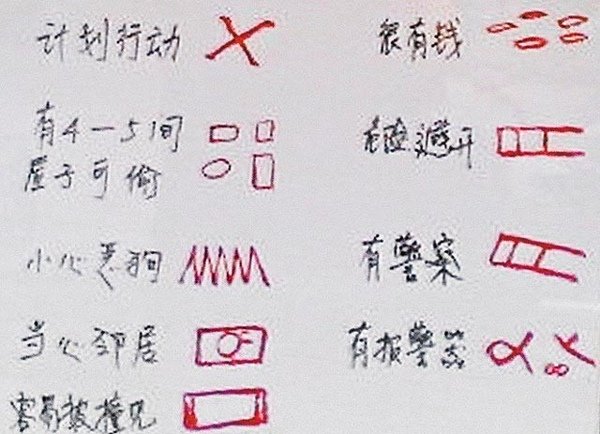 计划行动
很有钱
有4-5间
屋子可偷
危险避开
小心恶狗
有警察
当心邻居
有报警器
容易被撞见